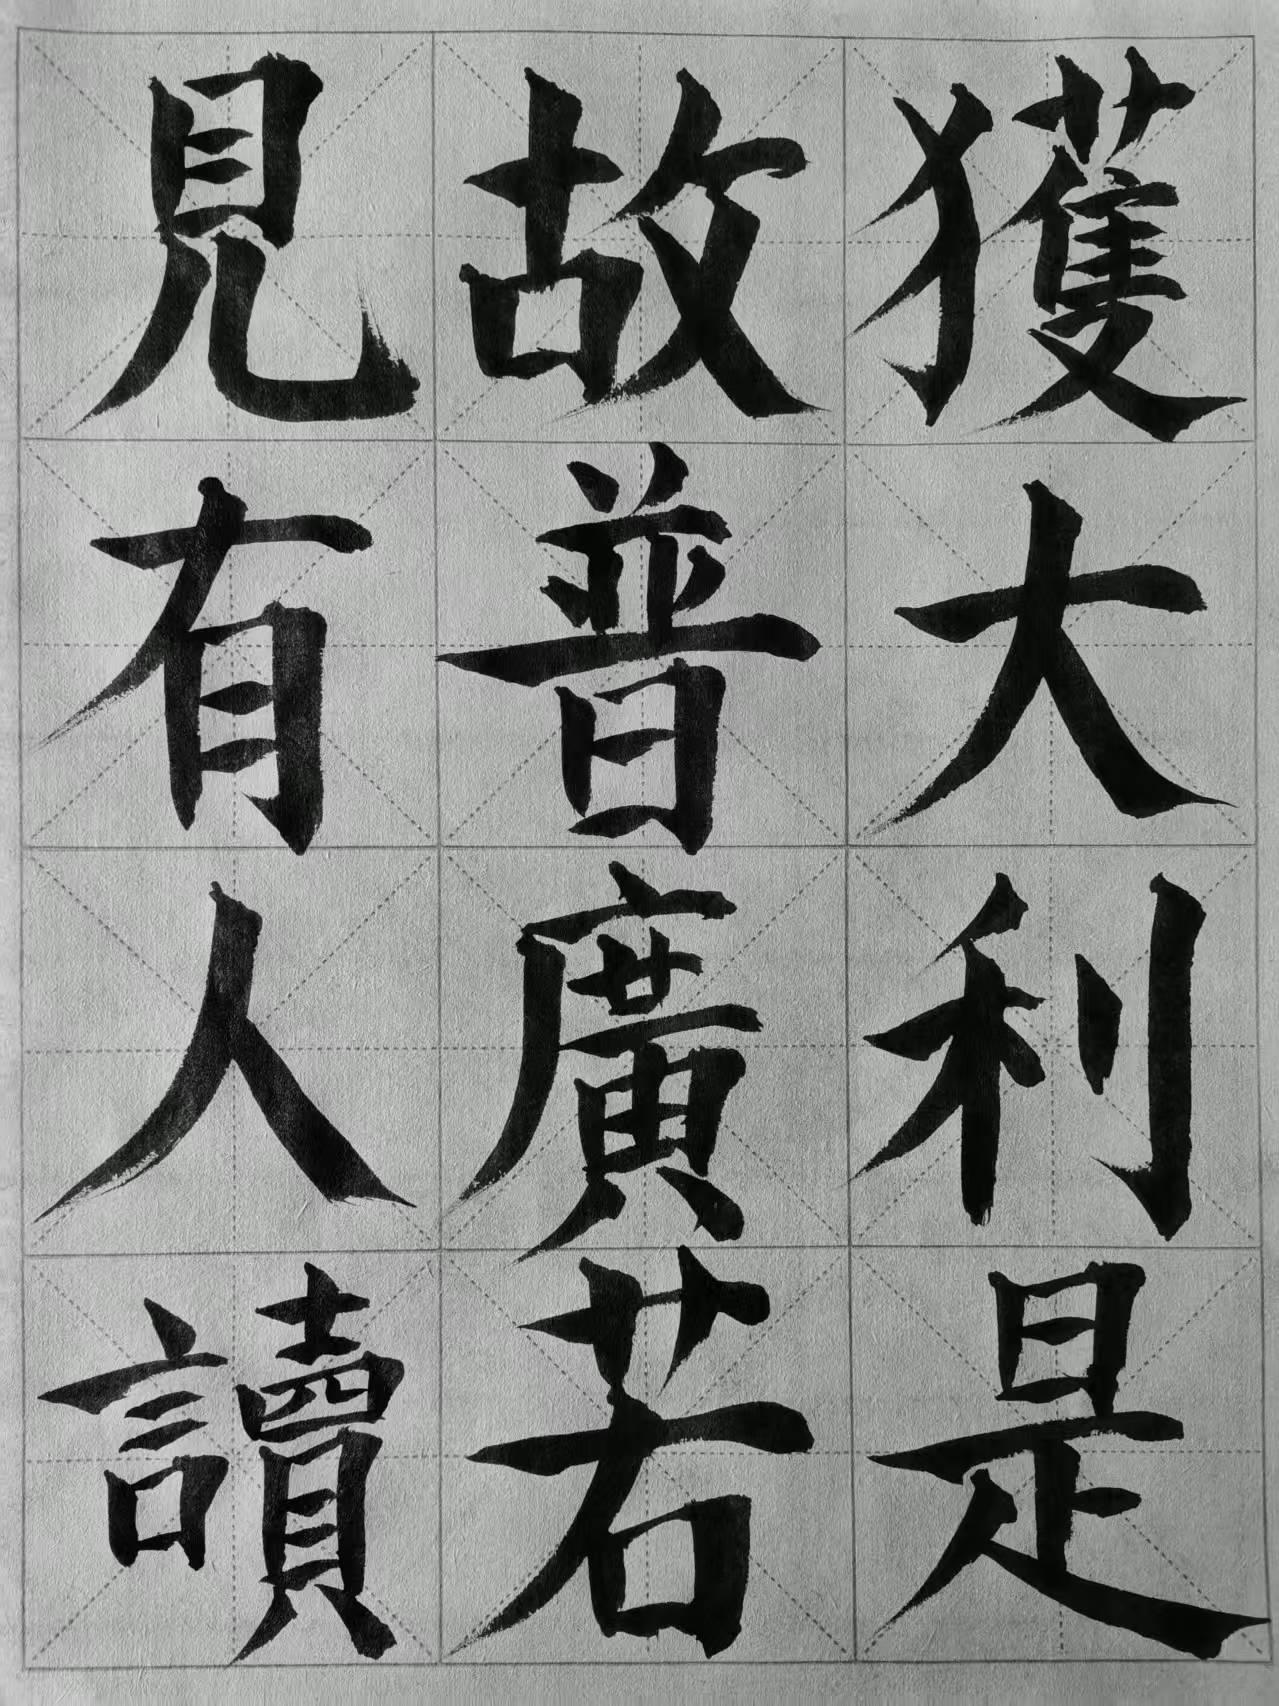 獲大利是
故普廣若
見有人讀